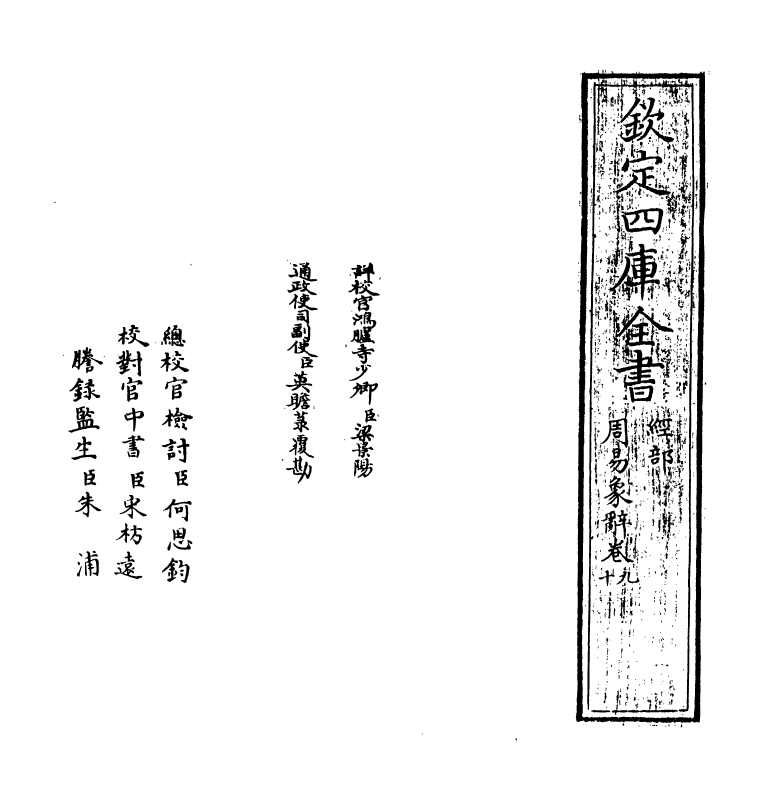 欽定四庫全書
經部
周易象辭卷九
十
詳校官鴻臚寺少卿臣梁景陽
通政使司副使臣莫瞻菉覆勘
總校官檢討臣何思鈞
校對官中書臣宋枋遠
謄錄監生臣朱浦